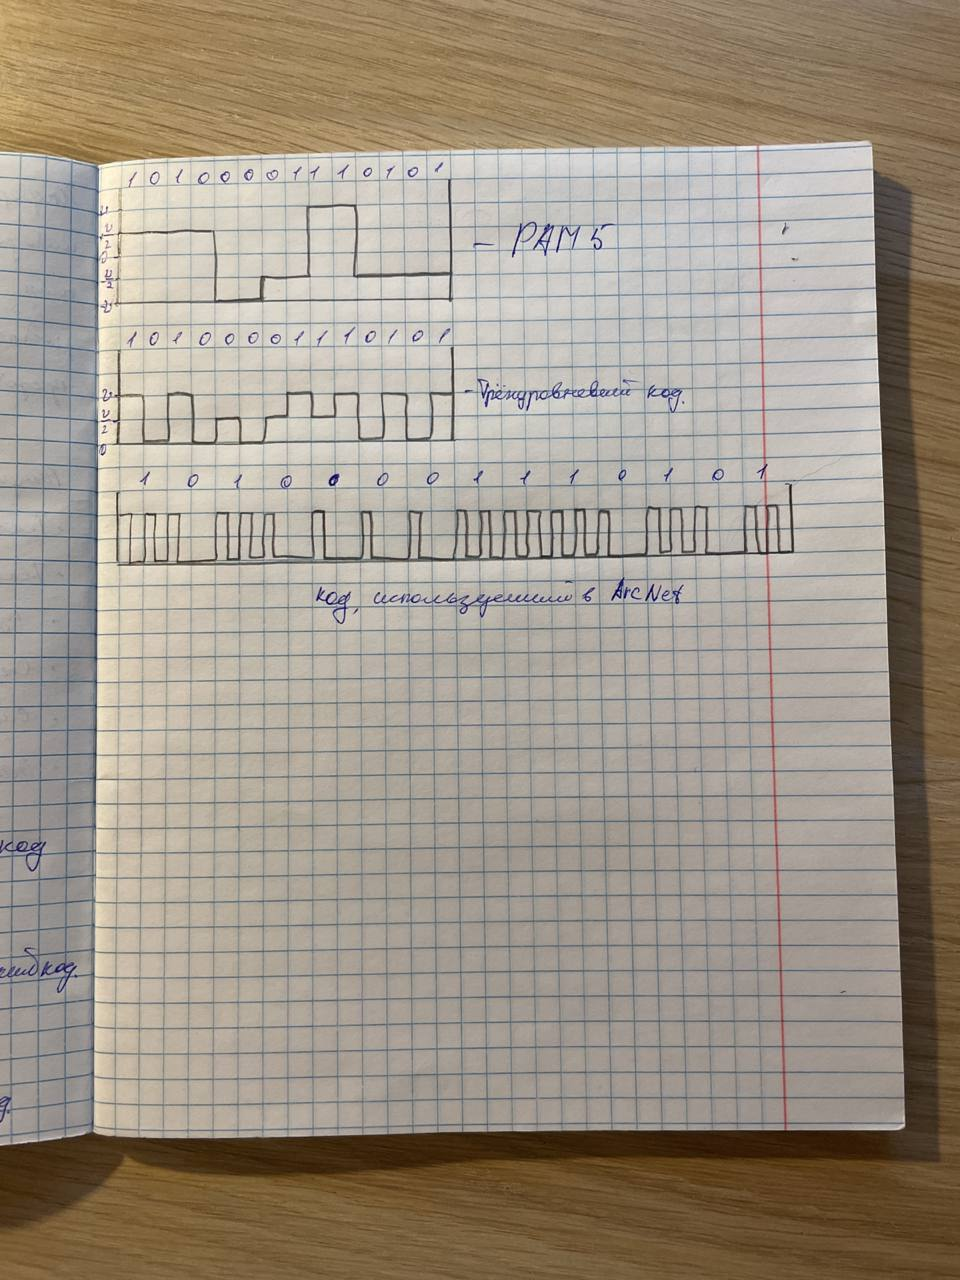 1 0 1 0 0 0 0 1 1 1 0 1 0 1
u
u/2
0
-u/2
-u
- PAM 5
1 0 1 0 0 0 0 1 1 1 0 1 0 1
u
u/2
0
- Трёхуровневый код.
1 0 1 0 0 0 0 1 1 1 0 1 0 1
код, используемый в ArcNet
код
код.